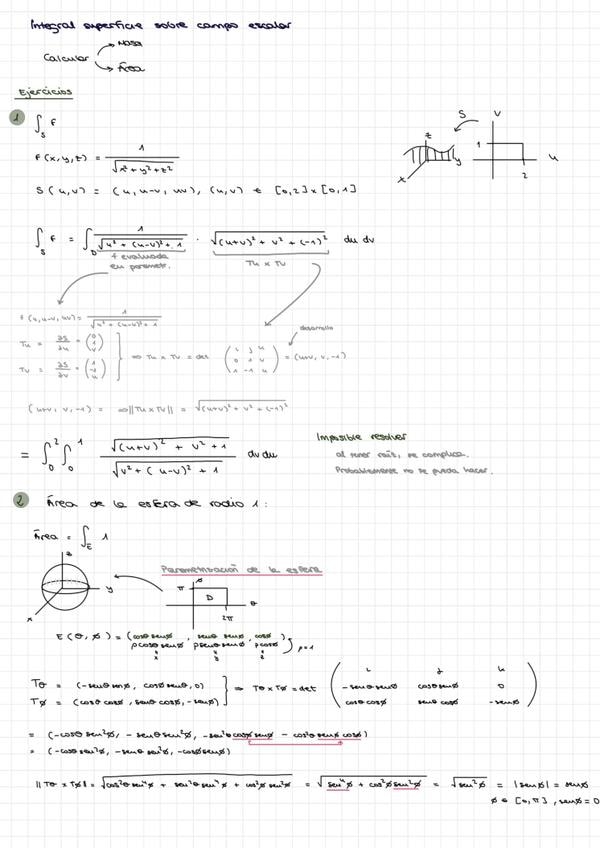 Integral superficie sobre campo escalar
Calcular → Masa
→ Área
Ejercicios
1 ∫_S f
f(x,y,z) = 1 / √(x² + y² + z²)
S(u,v) = (u, u-v, uv), (u,v) ∈ [0,2] x [0,1]
S
z y x
v 1 2 u
∫_S f = ∫_D 1 / √(u² + (u-v)² + 1 · √((u+v)² + v² + (-1)²) du dv
f evaluada
en parametr.
Tu x Tv
f(u, u-v, uv) = 1 / √(u² + (u-v)² + 1
Tu = ∂S/∂u = (0 1 v)
Tv = ∂S/∂v = (1 -1 u)
⇒ Tu x Tv = det (i j k / 0 1 v / 1 -1 u) = (u+v, v, -1)
desarrollo
(u+v, v, -1) = ⇒ ||Tu x Tv|| = √((u+v)² + v² + (-1)²)
= ∫_0^2 ∫_0^1 √((u+v)² + v² + 1) / √(v² + (u-v)² + 1) dv du
Imposible resolver
al tener raíz, se complica.
Probablemente no se pueda hacer.
2 Área de la esfera de radio 1:
Área = ∫_E 1
z y x
Parametrización de la esfera
π φ D 2π θ
E(θ, φ) = (cosθ senφ, senθ senφ, cosφ)
ρcosθ senφ ρsenθ senφ ρcosφ ρ=1
x y z
Tθ = (-senθ senφ, cosθ senφ, 0)
Tφ = (cosθ cosφ, senθ cosφ, -senφ)
⇒ Tθ x Tφ = det (i j k / -senθ senφ cosθ senφ 0 / cosθ cosφ senθ cosφ -senφ)
= (-cosθ sen²φ, -senθ sen²φ, -sen²θ cosφ senφ - cos²θ senφ cosφ)
= (-cosθ sen²φ, -senθ sen²φ, -cosφ senφ)
||Tθ x Tφ|| = √(cos²θ sen⁴φ + sen²θ sen⁴φ + cos²φ sen²φ) = √(sen⁴φ + cos²φ sen²φ) = √(sen²φ) = |senφ| = senφ
φ ∈ [0,π], senφ = 0